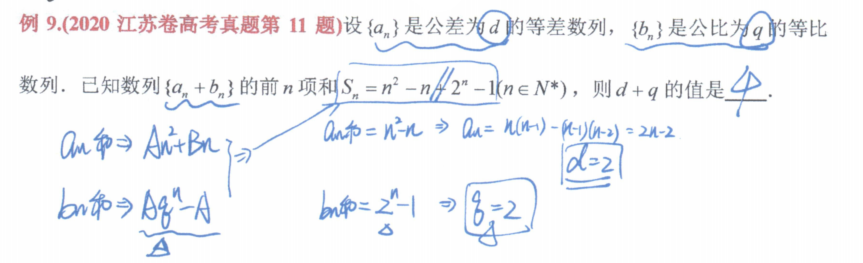 例 9.(2020 江苏卷高考真题第 11 题)设{aₙ}是公差为 d 的等差数列，{bₙ}是公比为 q 的等比
数列．已知数列{aₙ+bₙ}的前 n 项和 Sₙ=n²−n+2ⁿ−1(n∈N*)，则 d+q 的值是 4 ．
an和⇒An²+Bn ⇒
an和=n²-n ⇒ an=n(n-1)-(n-1)(n-2)=2n-2
d=2
bn和⇒Aqⁿ-A
bn和=2ⁿ-1 ⇒ q=2